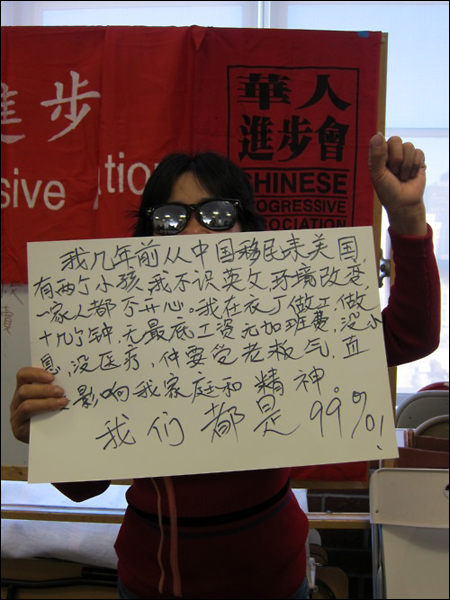 進步
ssive
ation
華人
進步會
CHINESE
ROGRESSIVE
我几年前从中国移民来美国,
有两个小孩,我不识英文,环境改变,
一家人都不开心。我在衣厂做工,做
十几个钟,无最底工资无加班费,没小
息,没医疗,仲要受老板气,直
影响我家庭和精神。
我们都是99%!
費